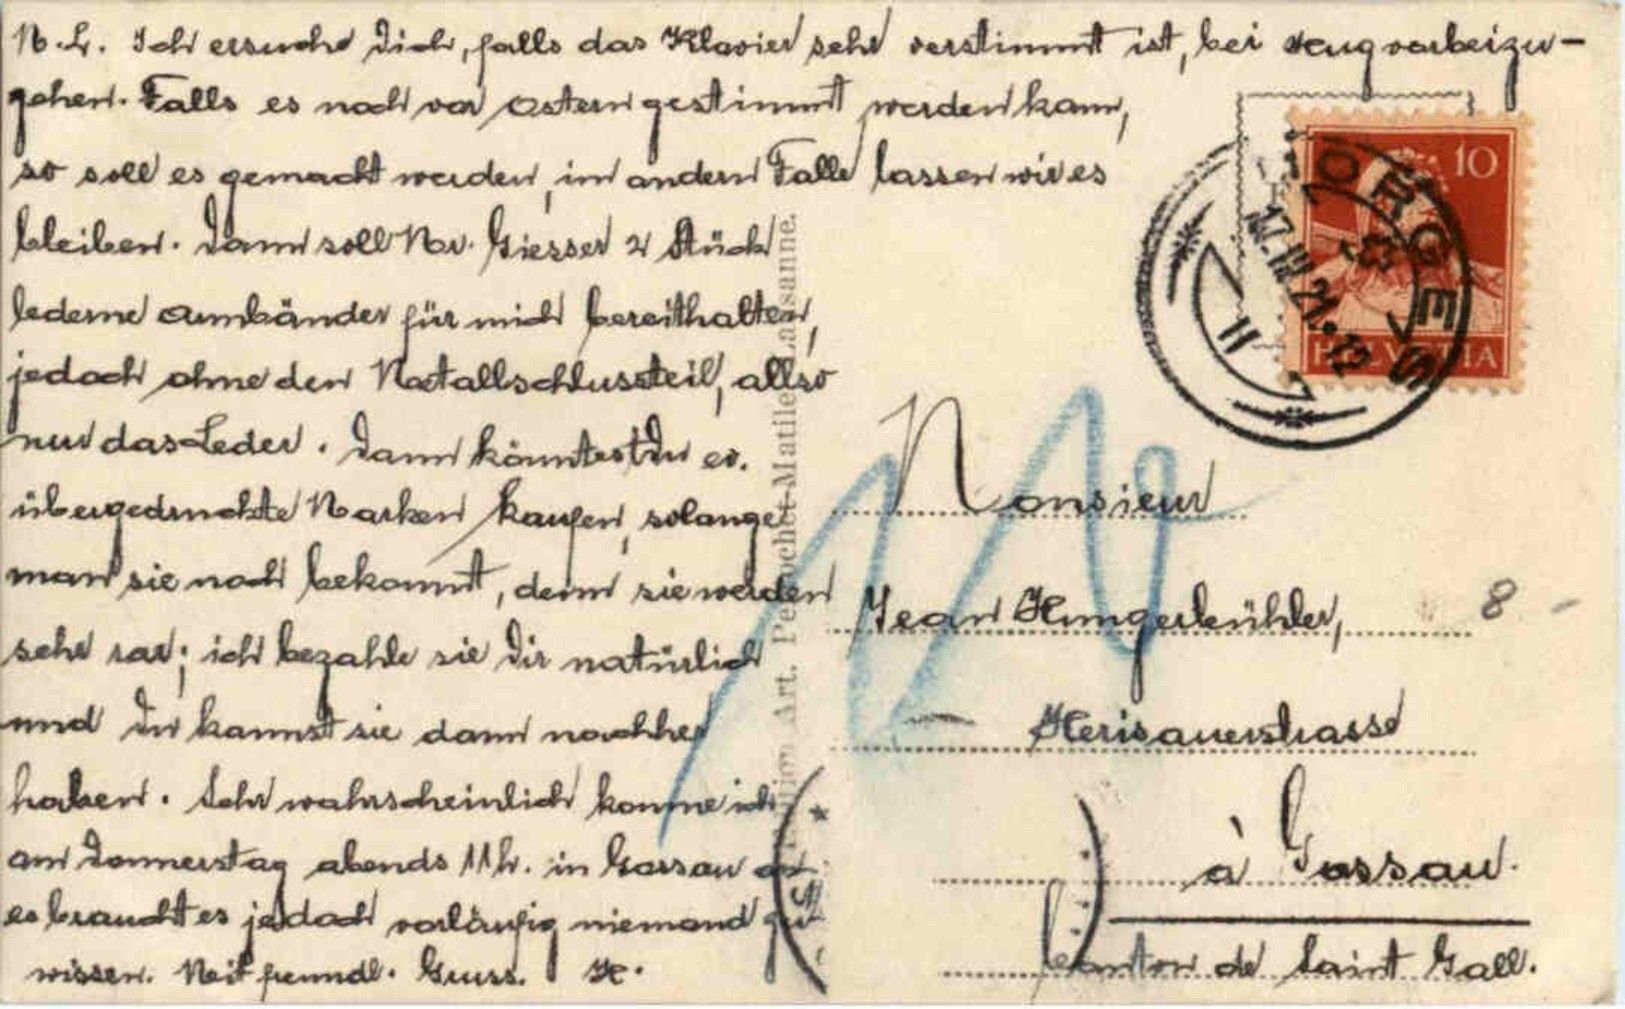 M. L. Ich ersuche Dich, falls das Klavier sehr verstimmt ist, bei Heug vorbeizu-
gehen. Falls es noch vor Ostern gestimmt werden kann,
so soll es gemacht werden, im andern Falle lassen wir es
bleiben. Dann soll Mr. Giesser 2 Stück
lederne Armbänder für mich bereithalten,
jedoch ohne den Metallschlussteil, allso
nur das Leder. Dann könntest Du ev.
übergedruckte Marken kaufen, solange
man sie noch bekommt, denn sie werden
sehr rar; ich bezahle sie Dir natürlich
und Du kannst sie dann nachher
haben. Sehr wahrscheinlich komme ich
am Donnerstag abends 11 h. in Gossau an
es braucht es jedoch vorläufig niemand zu
wissen. Mit freundl. Gruss. H.
Art. Perrochet-Matile, Lausanne.
10
HELVETIA
MORGES
17.III.21.-12
Monsieur
Jean Hungerbühler,
8 -
Herisauerstrasse
à Gossau.
Canton de Saint Gall.